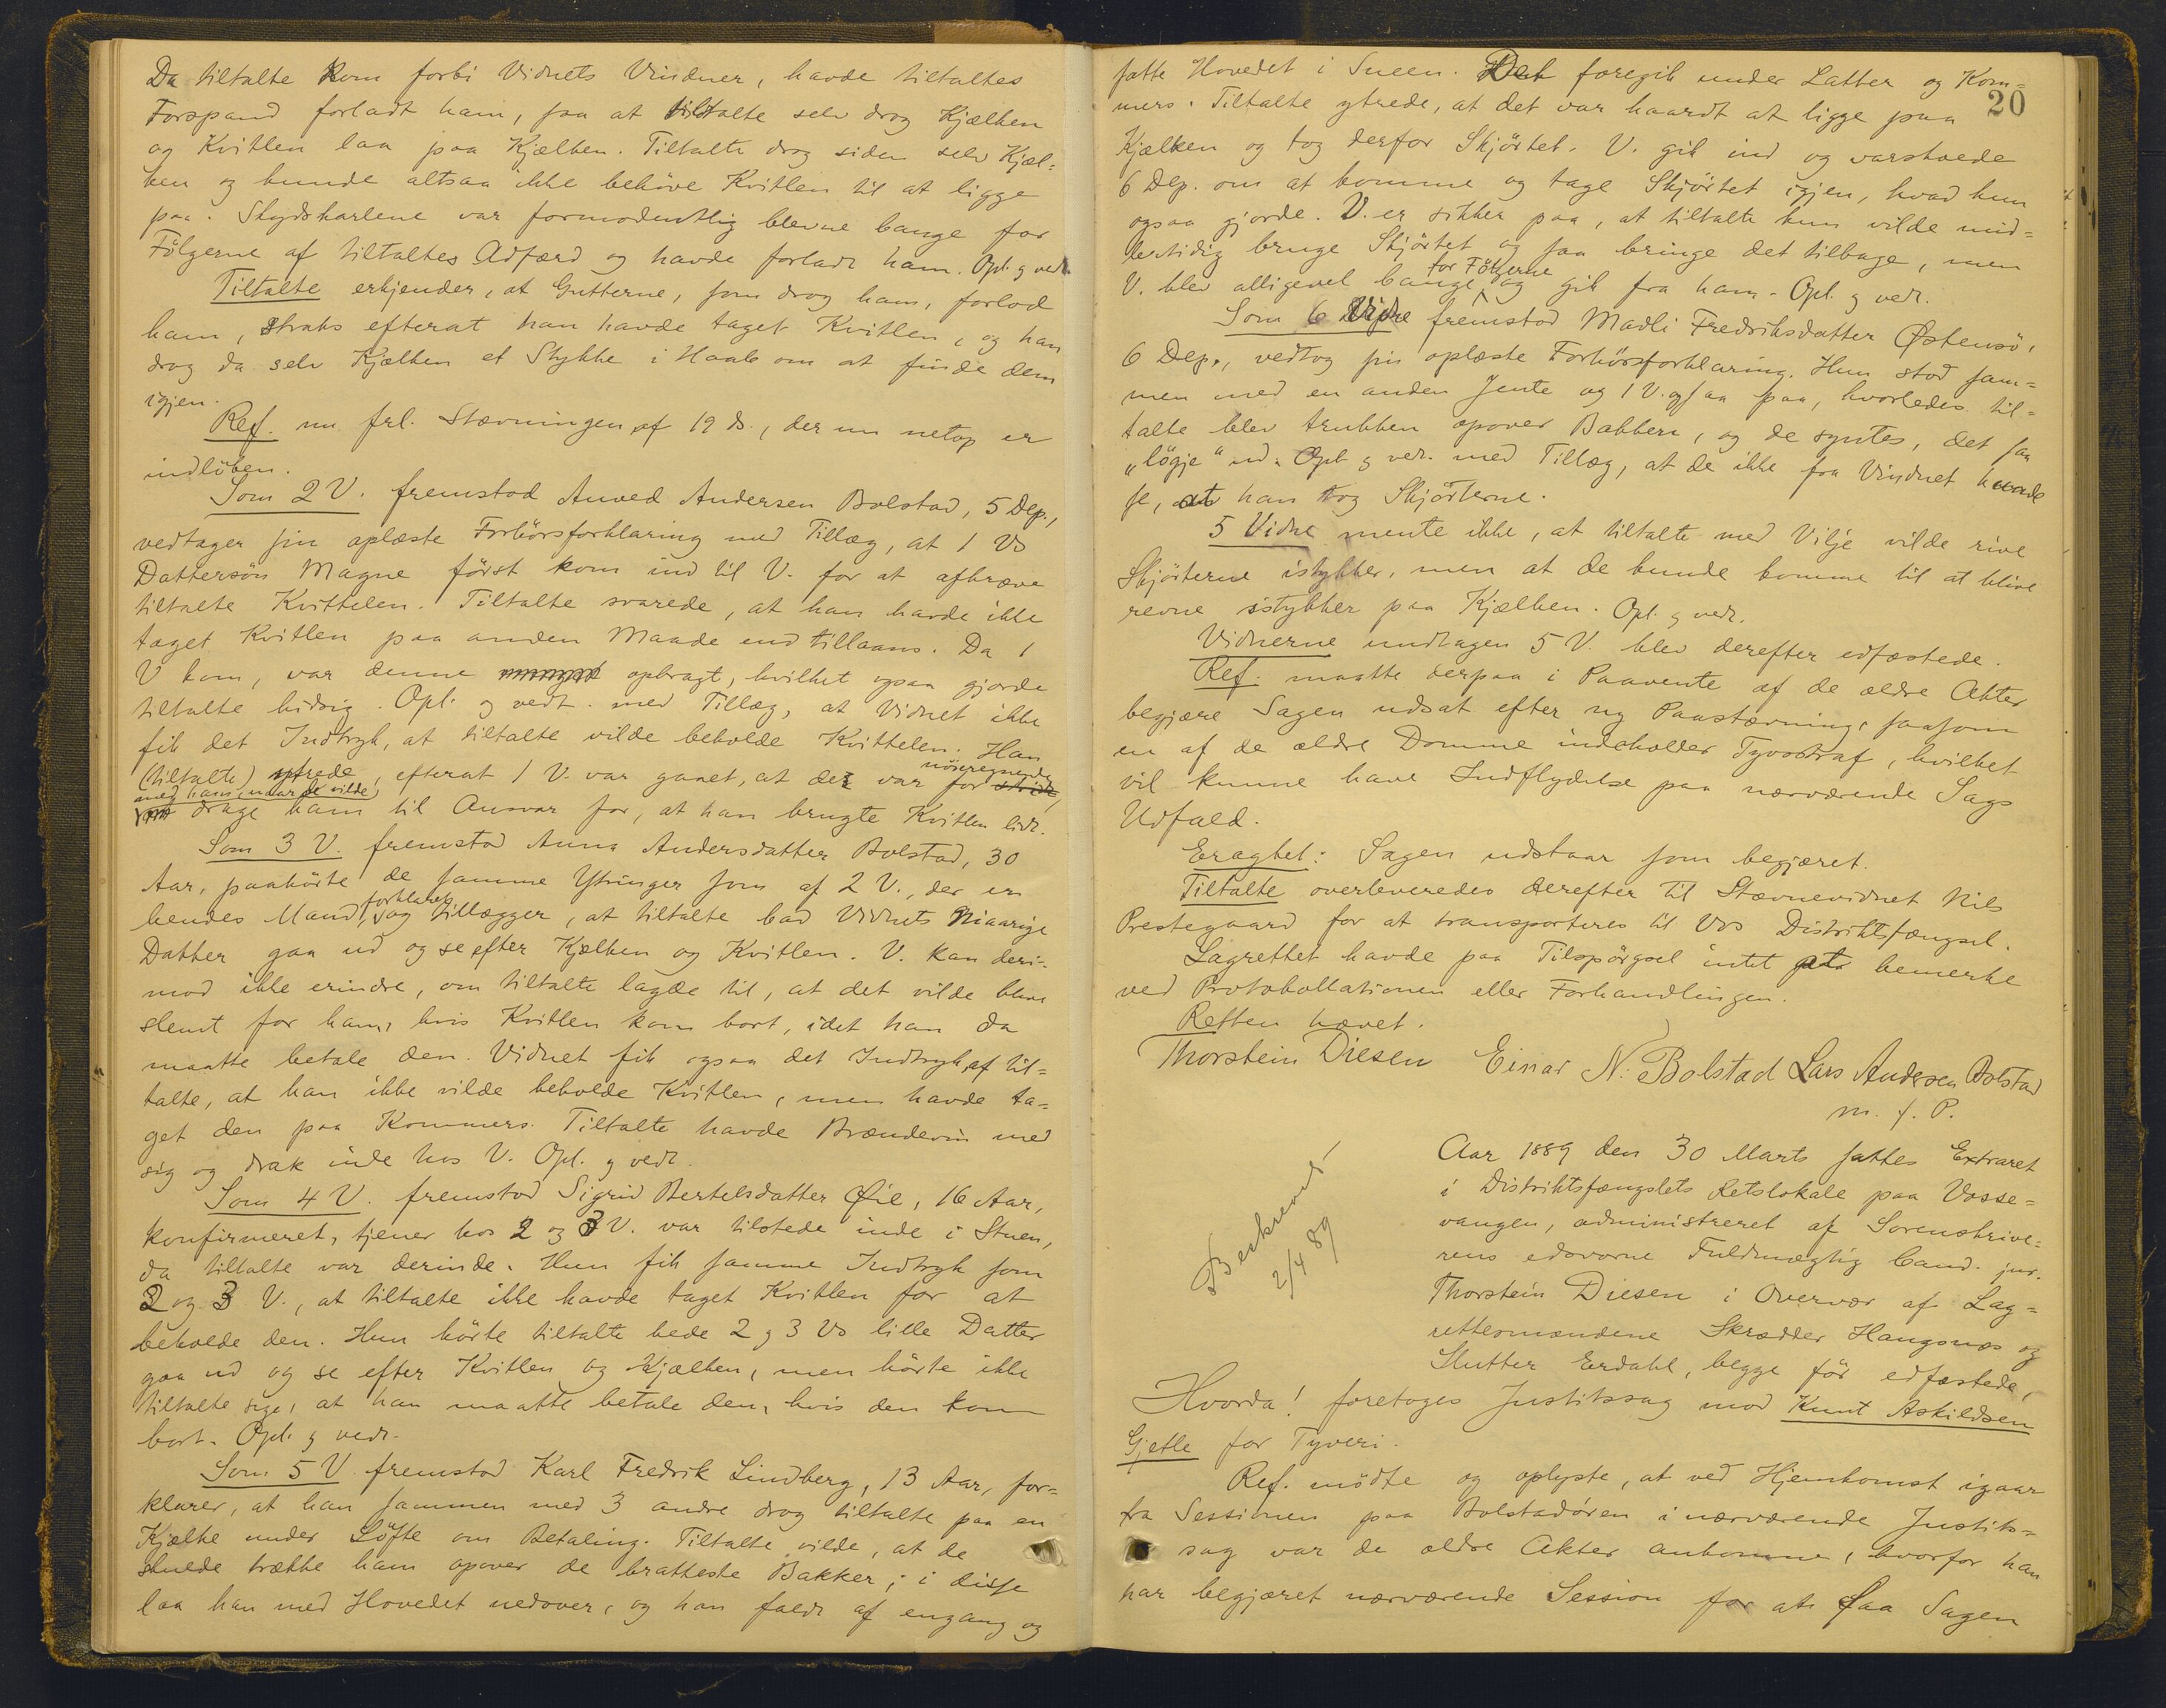 Da tiltalte kom forbi Vidnets Vinduer, havde tiltaltes
Forspand forladt ham, saa at tiltalte selv drog Kjælken
og Kvitlen laa paa Kjælken. Tiltalte drog siden selv Kjæl=
ken og kunde altsaa ikke behöve Kvitlen til at ligge
paa. Skydskarlene var formodentlig blevne bange for
Fölgerne af tiltaltes Adfærd og havde forladt ham. Opl. g vedt.
Tiltalte erkjender, at Gutterne, som drog ham, forlod
ham, straks efterat han havde taget Kvitlen, og han
drog da selv Kjælken et Stykke i Haab om at finde dem
igjen.
Ref. nu frl. Stævningen af 19 ds., der nu netop er
indlöben.
Som 2 V. fremstod Anved Andersen Bolstad, 5 Dep.,
vedtager sin oplæste Forhörsforklaring med Tillæg, at 1 Vs
Dattersön Magne först kom ind til V. for at afkræve
tiltalte Kvittelen. Tiltalte svarede, at han havde ikke
taget Kvitlen paa anden Maade end tillaans. Da 1
V kom, var denne opbragt, hvilket ogsaa gjorde
tiltalte hidsig. Opl. g vedt. med Tillæg, at Vidnet ikke
fik det Indtryk, at tiltalte vilde beholde Kvittelen. Han
(tiltalte) ytrede, efterat 1 V. var gaaet, at de var for nöieregnende
med ham, naar de vilde
drage ham til Ansvar for, at han brugte Kvitlen lidt.
Som 3 V. fremstod Anna Andersdatter Bolstad, 30
Aar, paahörte de samme Ytringer som af 2 V., der er
hendes Mand, forklaret, og tillægger, at tiltalte bad Vidnets Niaarige
Datter gaa ud og se efter Kjælken og Kvitlen. V. kan deri-
mod ikke erindre, om tiltalte lagde til, at det vilde blive
slemt for ham, hvis Kvitlen kom bort, idet han da
maatte betale den. Vidnet fik ogsaa det Indtryk af til=
talte, at han ikke vilde beholde Kvitlen, men havde ta=
get den paa Kommers. Tiltalte havde Brændevin med
sig og drak inde hos V. Opl. g vedt.
Som 4 V. fremstod Sigrid Bertelsdatter Øie, 16 Aar,
konfirmeret, tjener hos 2 og 3 V. var tilstede inde i Stuen,
da tiltalte var derinde. Hun fik samme Indtryk som
2 og 3 V., at tiltalte ikke havde taget Kvitlen for at
beholde den. Hun hörte tiltalte bede 2 g 3 Vs lille Datter
gaa ud og se efter Kvitlen og Kjælken, men hörte ikke
tiltalte sige, at han maatte betale den, hvis den kom
bort. Opl. g vedt.
Som 5 V fremstod Karl Fredrik Lindberg, 13 Aar, for=
klarer, at han sammen med 3 andre drog tiltalte paa en
Kjælke under Löfte om Betaling. Tiltalte vilde, at de
skulde trække ham opover de bratteste Bakker; i disse
laa han med Hovedet nedover, og han faldt af engang og
20
satte Hovedet i Sneen. Det foregik under Latter og Kom=
mers. Tiltalte ytrede, at det var haardt at ligge paa
Kjælken og tog derfor Skjörtet. V. gik ind og varskoede
6 Dep. om at komme og tage Skjörtet igjen, hvad hun
ogsaa gjorde. V. er sikker paa, at tiltalte kun vilde mid=
lertidig bruge Skjörtet og saa bringe det tilbage, men
V. blev alligevel bange for Fölgerne og gik fra ham. Opl. g vedt.
Som 6 Vidne fremstod Madli Fredriksdatter Østensö,
6 Dep., vedtog sin oplæste Forhörsforklaring. Hun stod sam=
men med en anden Jente og 1 V. og saa paa, hvorledes til=
talte blev trukken opover Bakken, og de syntes, det saa
„lögje" ud. Opl. g vedt. med Tillæg, at de ikke fra Vinduet kunde
se, at han tog Skjörterne.
5 Vidne mente ikke, at tiltalte med Vilje vilde rive
Skjörterne istykker, men at de kunde komme til at blive
revne istykker paa Kjælken. Opl. g vedt.
Vidnerne undtagen 5 V. blev derefter edfæstede.
Ref. maatte derpaa i Paavente af de ældre Akter
begjære Sagen udsat efter ny Paastævning, saasom
en af de ældre Domme indeholder Tyvsstraf, hvilket
vil kunne have Indflydelse paa nærværende Sags
Udfald.
Eragtet: Sagen udstaar som begjæret.
Tiltalte overleveredes derefter til Stævnevidnet Nils
Prestegaard for at transporteres til Vos Distriktsfængsel.
Lagrettet havde paa Tilspörgsel intet at bemerke
ved Protokollationen eller Forhandlingen.
Retten hævet.
Thorstein Diesen Einar N. Bolstad Lars Andersen Bolstad
m. f. P.
Beskrevet!
2/4 89
Aar 1889 den 30 Marts sattes Extraret
i Distriktsfængslets Retslokale paa Vosse=
vangen, administreret af Sorenskrive=
rens edsvorne Fuldmægtig Cand. jur.
Thorstein Diesen i Overvær af Lag=
rettesmændene Skrædder Haugsnæs og
Slutter Erdahl, begge för edfæstede,
Hvorda! foretoges Justitssag mod Knut Askildsen
Gjetle for Tyveri.
Ref. mödte og oplyste, at ved Hjemkomst igaar
fra Sessionen paa Bolstadören i nærværende Justits=
sag var de ældre Akter ankomne, hvorfor han
har begjæret nærværende Session for at faa Sagen